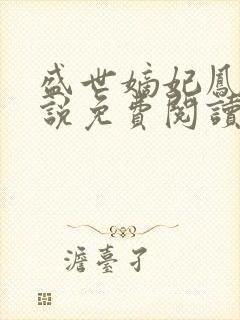 盛世嫡妃鳳
說免費閱讀
澹臺孑